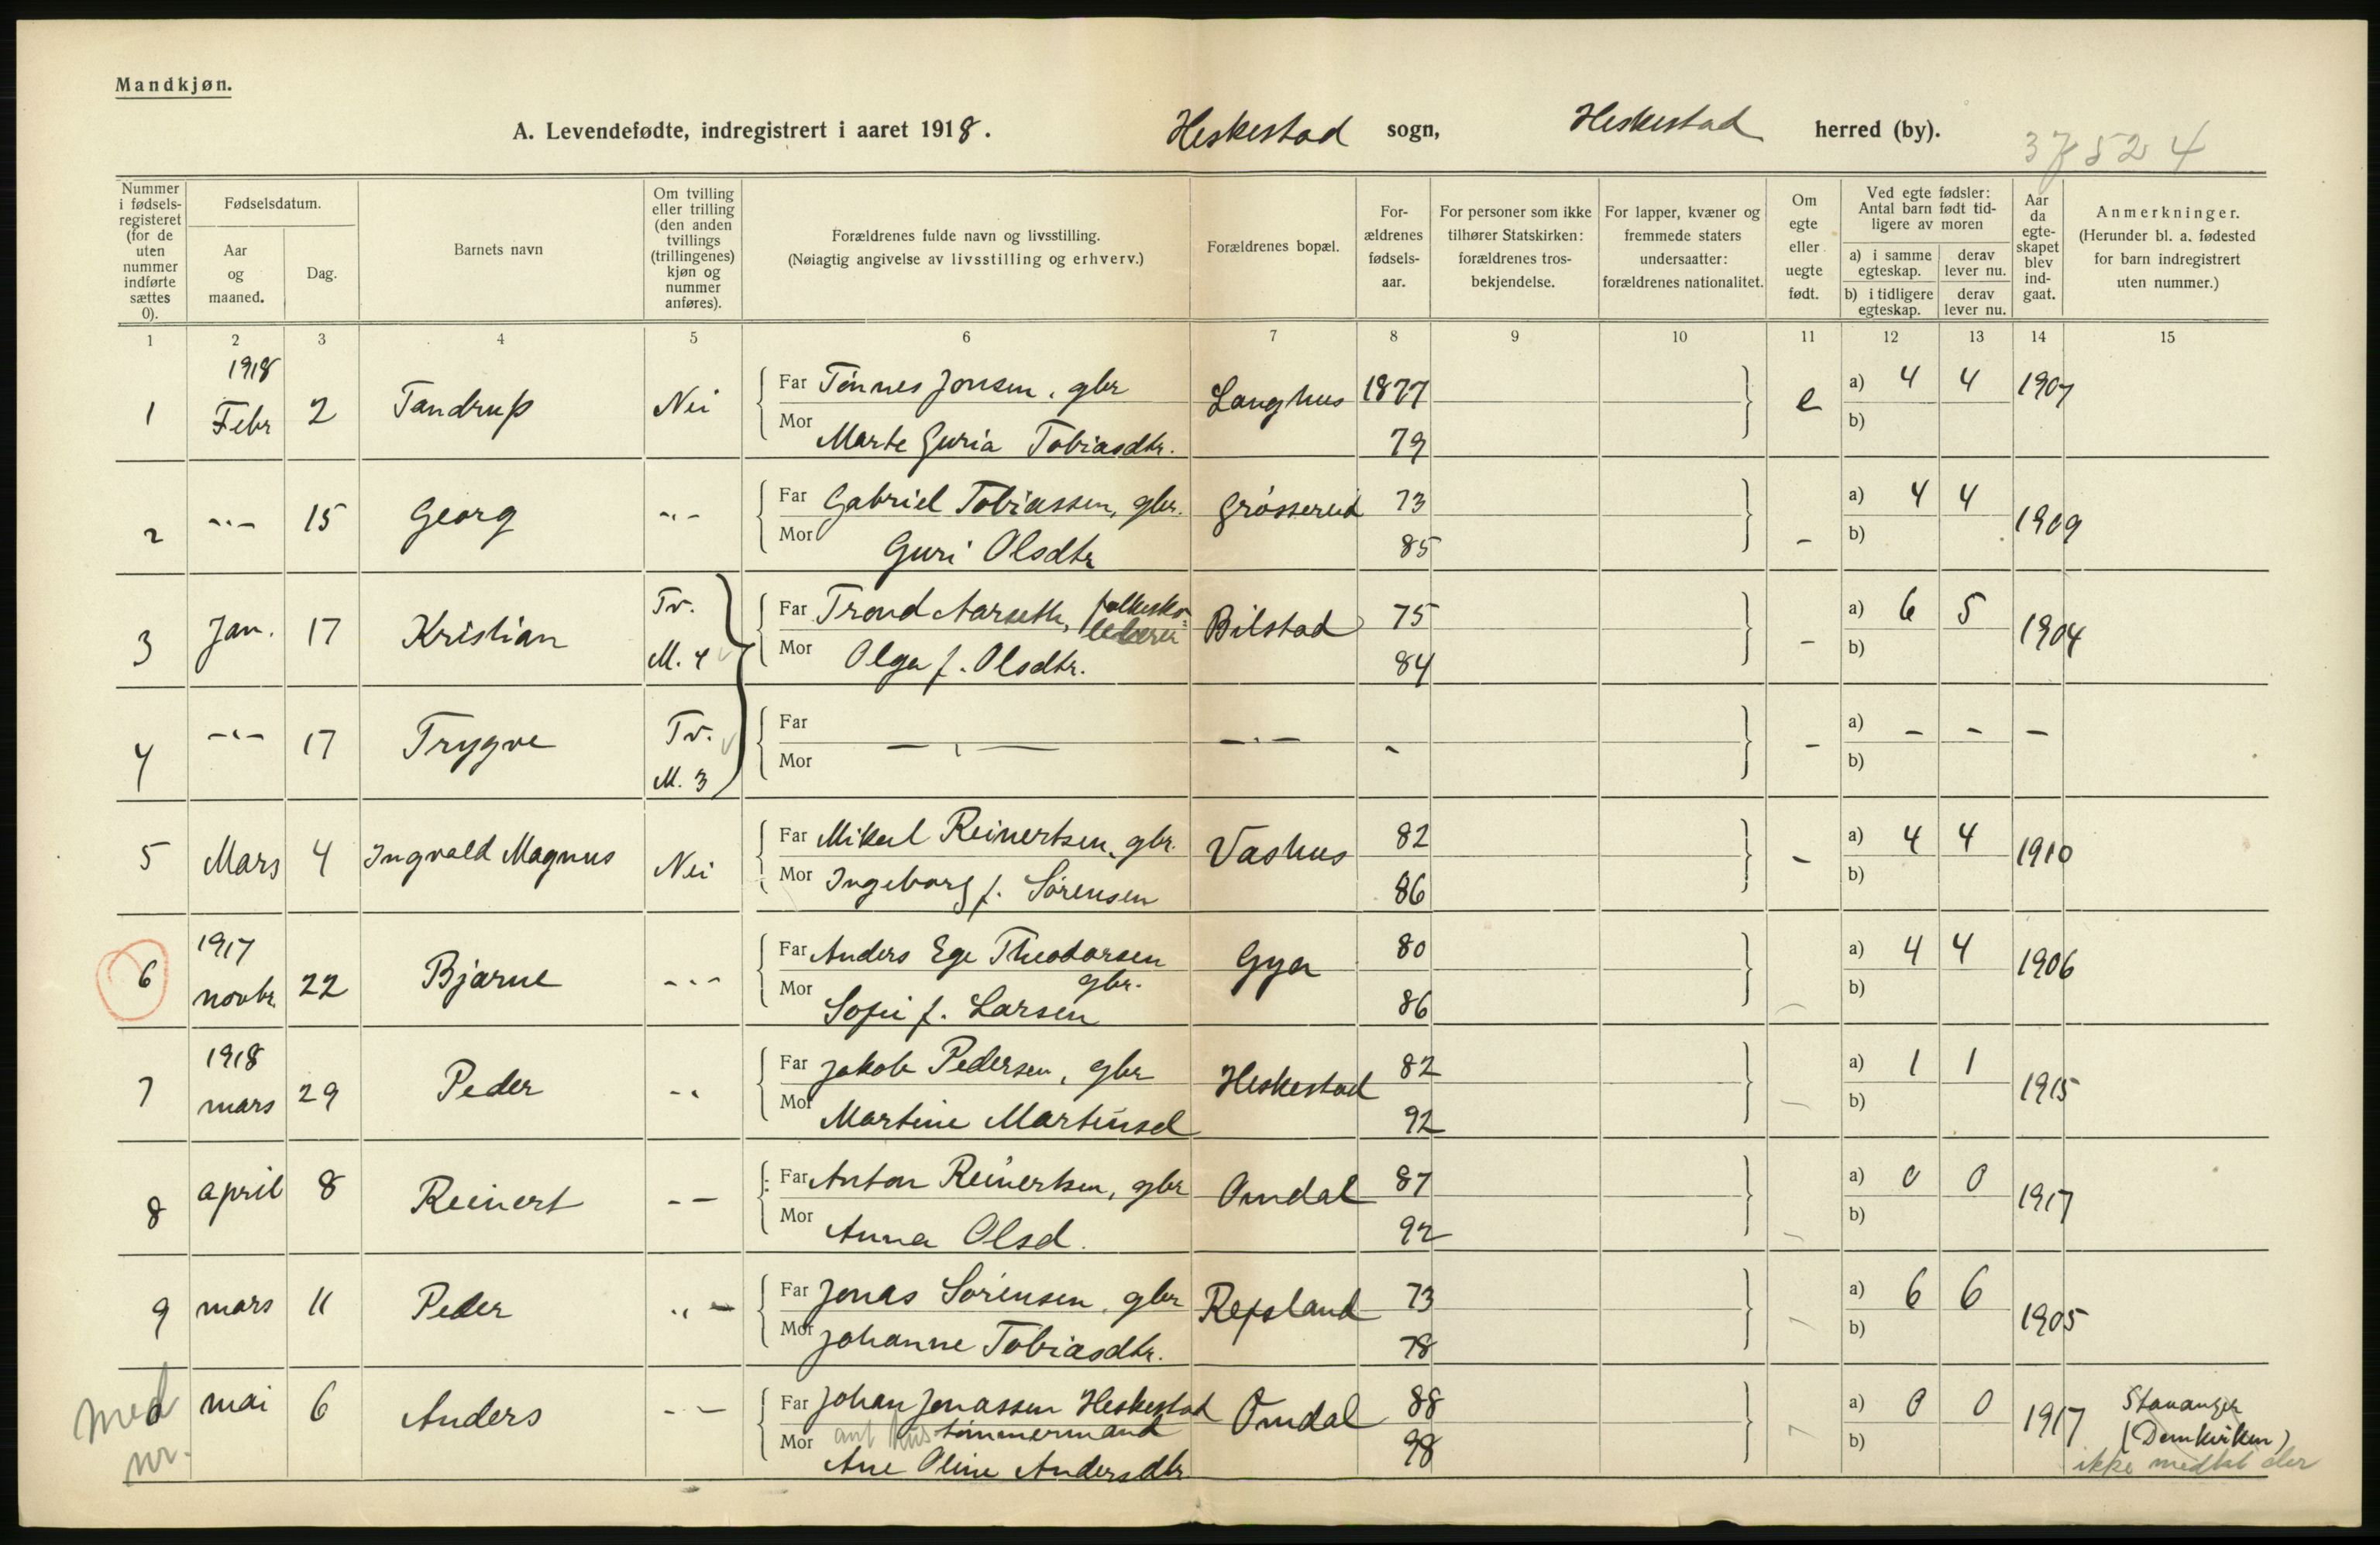 Mandkjøn.
A. Levendefødte, indregistrert i aaret 1918. Heskestad sogn, Heskestad herred (by).
37524
Nummer i fødsels-registeret (for de uten nummer indførte sættes 0).
Fødselsdatum.
Aar og maaned.
Dag.
Barnets navn
Om tvilling eller trilling (den anden tvillings (trillingenes) kjøn og nummer anføres).
Forældrenes fulde navn og livsstilling.
(Nøiagtig angivelse av livsstilling og erhverv.)
Forældrenes bopæl.
For-ældrenes fødsels-aar.
For personer som ikke tilhører Statskirken: forældrenes tros-bekjendelse.
For lapper, kvæner og fremmede staters undersaatter: forældrenes nationalitet.
Om egte eller uegte født.
Ved egte fødsler: Antal barn født tid-ligere av moren
a) i samme egteskap. derav lever nu.
b) i tidligere egteskap. derav lever nu.
Aar da egte-skapet blev ind-gaat.
Anmerkninger.
(Herunder bl. a. fødested for barn indregistrert uten nummer.)
1 2 3 4 5 6 7 8 9 10 11 12 13 14 15
1 1918 Febr 2 Tandrup Nei Far Tønnes Jonsen, gbr Langhus 1877 e a) 4 4 1907
Mor Marte Guria Tobiasdtr. 79 b)
2 -"- 15 Georg -"- Far Gabriel Tobiassen, gbr. Grøssereid 73 - a) 4 4 1909
Mor Guri Olsdtr 85 b)
3 Jan. 17 Kristian Tv. M. 4 Far Trond Aarseth, folkesko-lelærer Bilstad 75 - a) 6 5 1904
Mor Olga f. Olsdtr. 84 b)
4 -"- 17 Trygve Tv. M. 3 Far - - - - a) - - -
Mor b)
5 Mars 4 Ingvald Magnus Nei Far Mikal Reinertsen, gbr. Vashus 82 - a) 4 4 1910
Mor Ingeborg f. Sørensen 86 b)
6 1917 novbr. 22 Bjarne -"- Far Anders Ege Theodorsen gbr. Gya 80 - a) 4 4 1906
Mor Sofie f. Larsen 86 b)
7 1918 mars 29 Peder -"- Far Jakob Pedersen, gbr Heskestad 82 - a) 1 1 1915
Mor Martine Martinsd 92 b)
8 april 8 Reinert - - Far Anton Reinertsen, gbr Omdal 87 - a) 0 0 1917
Mor Anna Olsd. 92 b)
9 mars 11 Peder "- Far Jonas Sørensen, gbr Repsland 73 - a) 6 6 1905
Mor Johanne Tobiasdtr. 78 b)
0 mai 6 Anders - - Far Johan Jonassen Heskestad Omdal 88 - a) 0 0 1917 Stavanger
med nr. tømmermand (Domkirken)
Mor Ane Oline Andersdtr 98 b) ikke medtat der